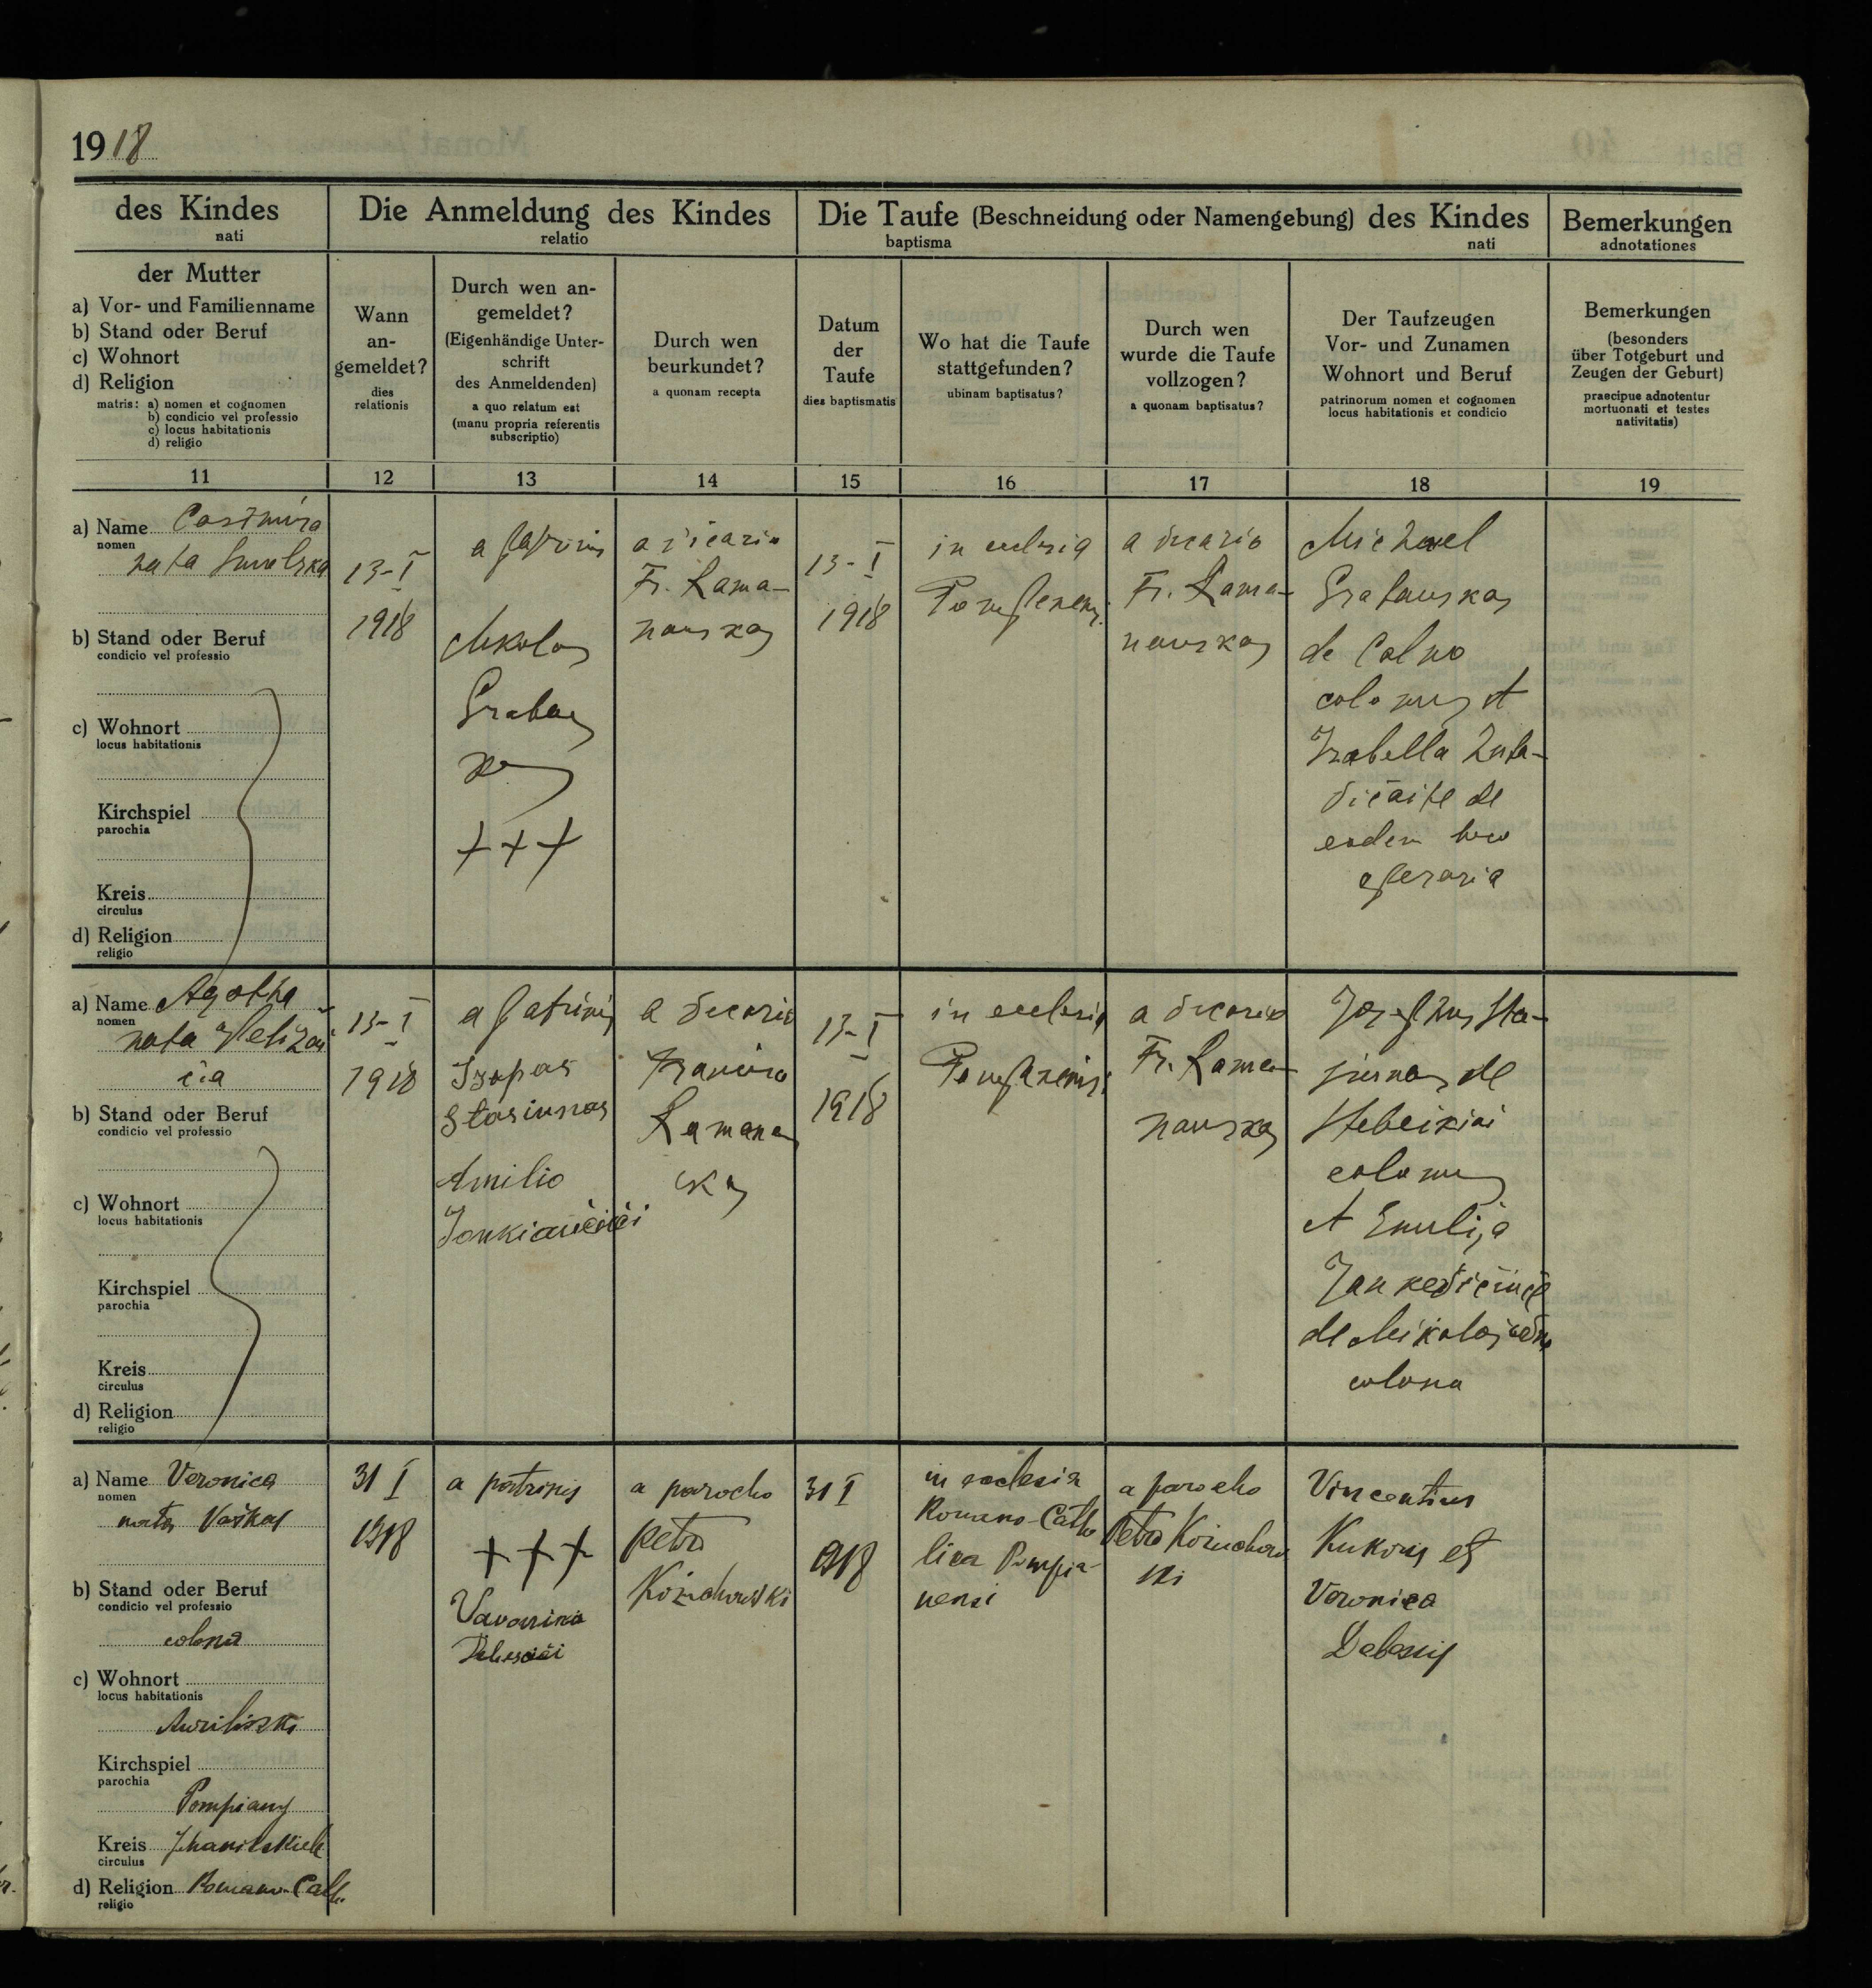 1918
des Kindes
nati
Die Anmeldung des Kindes
relatio
Die Taufe (Beschneidung oder Namengebung) des Kindes
baptisma nati
Bemerkungen
adnotationes
der Mutter
a) Vor- und Familienname
b) Stand oder Beruf
c) Wohnort
d) Religion
matris: a) nomen et cognomen
b) condicio vel professio
c) locus habitationis
d) religio
Wann
an-
gemeldet?
dies
relationis
Durch wen an-
gemeldet?
(Eigenhändige Unter-
schrift
des Anmeldenden)
a quo relatum est
(manu propria referentis
subscriptio)
Durch wen
beurkundet?
a quonam recepta
Datum
der
Taufe
dies baptismatis
Wo hat die Taufe
stattgefunden?
ubinam baptisatus?
Durch wen
wurde die Taufe
vollzogen?
a quonam baptisatus?
Der Taufzeugen
Vor- und Zunamen
Wohnort und Beruf
patrinorum nomen et cognomen
locus habitationis et condicio
Bemerkungen
(besonders
über Totgeburt und
Zeugen der Geburt)
praecipue adnotentur
mortuonati et testes
nativitatis)
11 12 13 14 15 16 17 18 19
a) Name Casimira
nomen
nata
b) Stand oder Beruf
condicio vel professio
c) Wohnort
locus habitationis
Kirchspiel
parochia
Kreis
circulus
d) Religion
religio
13-I
1918
a patrinis
Mikolas
+++
a vicario
Fr. Rama-
nauskas
13-I
1918
in eclesia
a vicario
Fr. Rama-
nauskas
Michael
Grabauskas
de Calno
colonus et
Izabella
de
eodem loco
operaria
a) Name Agatha
nomen
nata
b) Stand oder Beruf
condicio vel professio
c) Wohnort
locus habitationis
Kirchspiel
parochia
Kreis
circulus
d) Religion
religio
13-I
1918
a patrinis
Izopas
Stasiunas
Amilio
a vicario
13-I
1918
in eclesia
a vicario
Fr. Rama-
nauskas
Josephus Sta-
siunas de
Stebeikiai
colonus
et Emilija
de
colona
a) Name Veronica
nomen
nata Vaškas
b) Stand oder Beruf
condicio vel professio
colona
c) Wohnort
locus habitationis
Kirchspiel
parochia
Pompiany
Kreis
circulus
d) Religion Romano-Cath.
religio
31 I
1918
a patrinis
+++
a parocho
Petro
31 I
1918
in ecclesia
Romano-Catho
lica Pompia-
nensi
a parocho
Petro
Vincentius
Kukoris et
Veronica